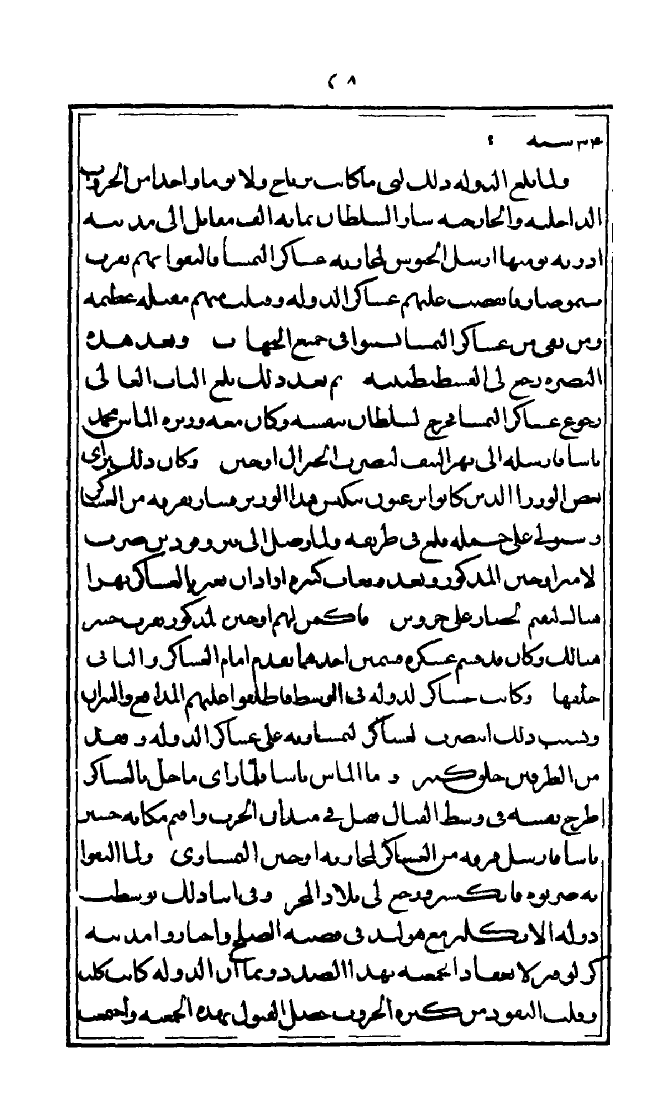 ٢٨
سنة ٣٤
ولما بلغ الدولة ذلك لتي ما كانت ترتاح ولا يوما واحدا من الحروب
الداخلية والخارجية سار السلطان بماية الف مقاتل الى مدينة
ادرنه ومنها ارسل الجيوش لمحاربة عساكر النمسا فالتقوا بهم بقرب
عليهم عساكر الدولة وقتلت منهم مقتلة عظيمة
ومن بقي من عساكر النمسا في جميع الجهات وبعد هذه
النصرة رجع لى القسطنطينية ثم بعد ذلك بلغ الباب العالي
رجوع عساكر النمسا فخرج لسلطان بنفسه وكان معه وزيره الماس محمد
باشا فارسله الى نهر لضرب الجنرال اوجين وكان ذلك براي
بعض الوزرا الذين كانوا يرغبون هذا الوزير فسار بفرقة من العساكر
على في طريقه ولما وصل الى ضرب
لامير اوجين المذكور وبعد كثيرة اراد ان بالعساكر نهرا
هنالك الحصار على فا لهم اوجين لمذكور بقرب جسر
هنالك وكان قد قسم عسكره قسمين احدهما تقدم امام العساكر والثاني
خلفها وكانت عساكر لدولة في الوسط فاطلقوا عليهم المدافع والنيران
وبسبب ذلك انتصرت لعساكر لنمساوية على عساكر الدولة وفقد
من الطرفين خلق كثير و ما الماس باشا فلما راى ما حل بالعساكر
طرح نفسه في وسط القتال فقتل في ميدان الحرب واقيم مكانه حسين
باشا فارسل فرقة من العساكر لمحاربة اوجين النمساوي ولما التقوا
به ضربوه فانكسر ورجع لى بلاد المجر وفي اثنا ذلك توسطت
دولة الانكليز مع هولندا في قضية الصلح واختاروا مدينة
كرلوفتز لانعقاد الجمعية بهذا الصدد وبما ان الدولة كانت كلت
وقلت النقود من كثرة الحروب حصل القبول بهذه الجمعية واجتمعت